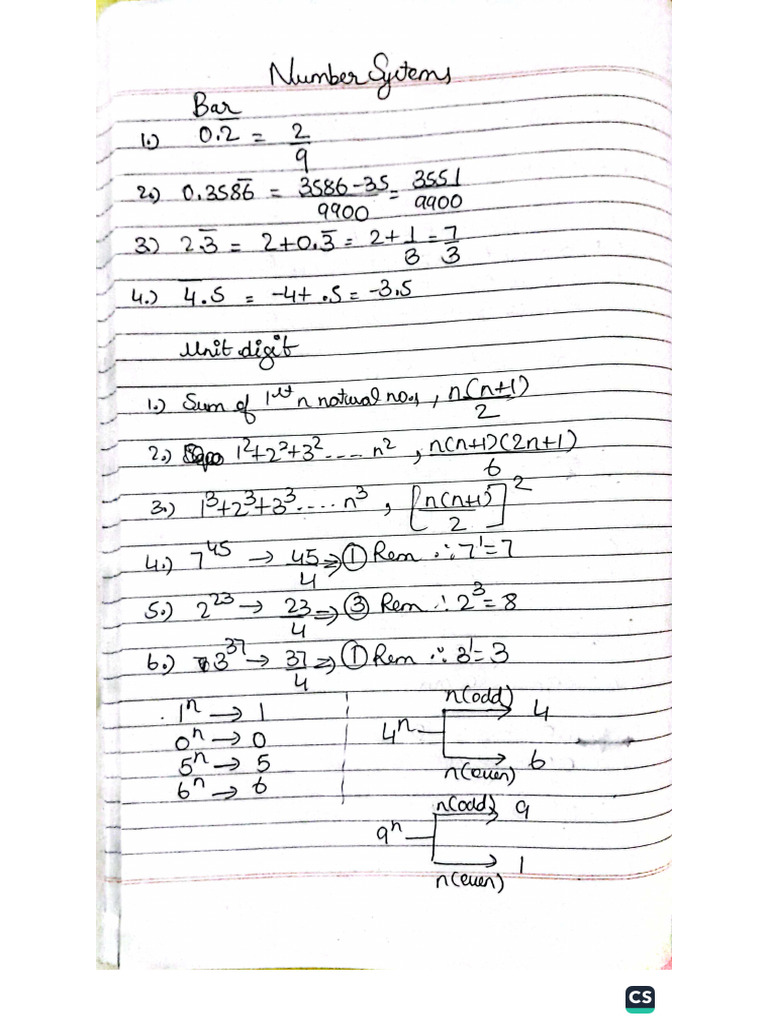 Number Systems
Bar
1.) 0.2̅ = 2/9
2.) 0.358̅6̅ = (3586-35)/9900 = 3551/9900
3.) 2.3̅ = 2+0.3̅ = 2+1/3 = 7/3
4.) 4̅.5 = -4+.5 = -3.5
Unit digit
1.) Sum of 1st n natural nos, n(n+1)/2
2.) 1²+2²+3²....n², n(n+1)(2n+1)/6
3.) 1³+2³+3³.....n³, [n(n+1)/2]²
4.) 7⁴⁵ → 45/4 ⇒ ① Rem ∴ 7¹=7
5.) 2²³ → 23/4 ⇒ ③ Rem ∴ 2³=8
6.) 3³⁷ → 37/4 ⇒ ① Rem ∵ 3¹=3
1ⁿ → 1
0ⁿ → 0
5ⁿ → 5
6ⁿ → 6
n(odd) 4
4ⁿ
n(even) 6
n(odd) 9
9ⁿ
n(even) 1
CS